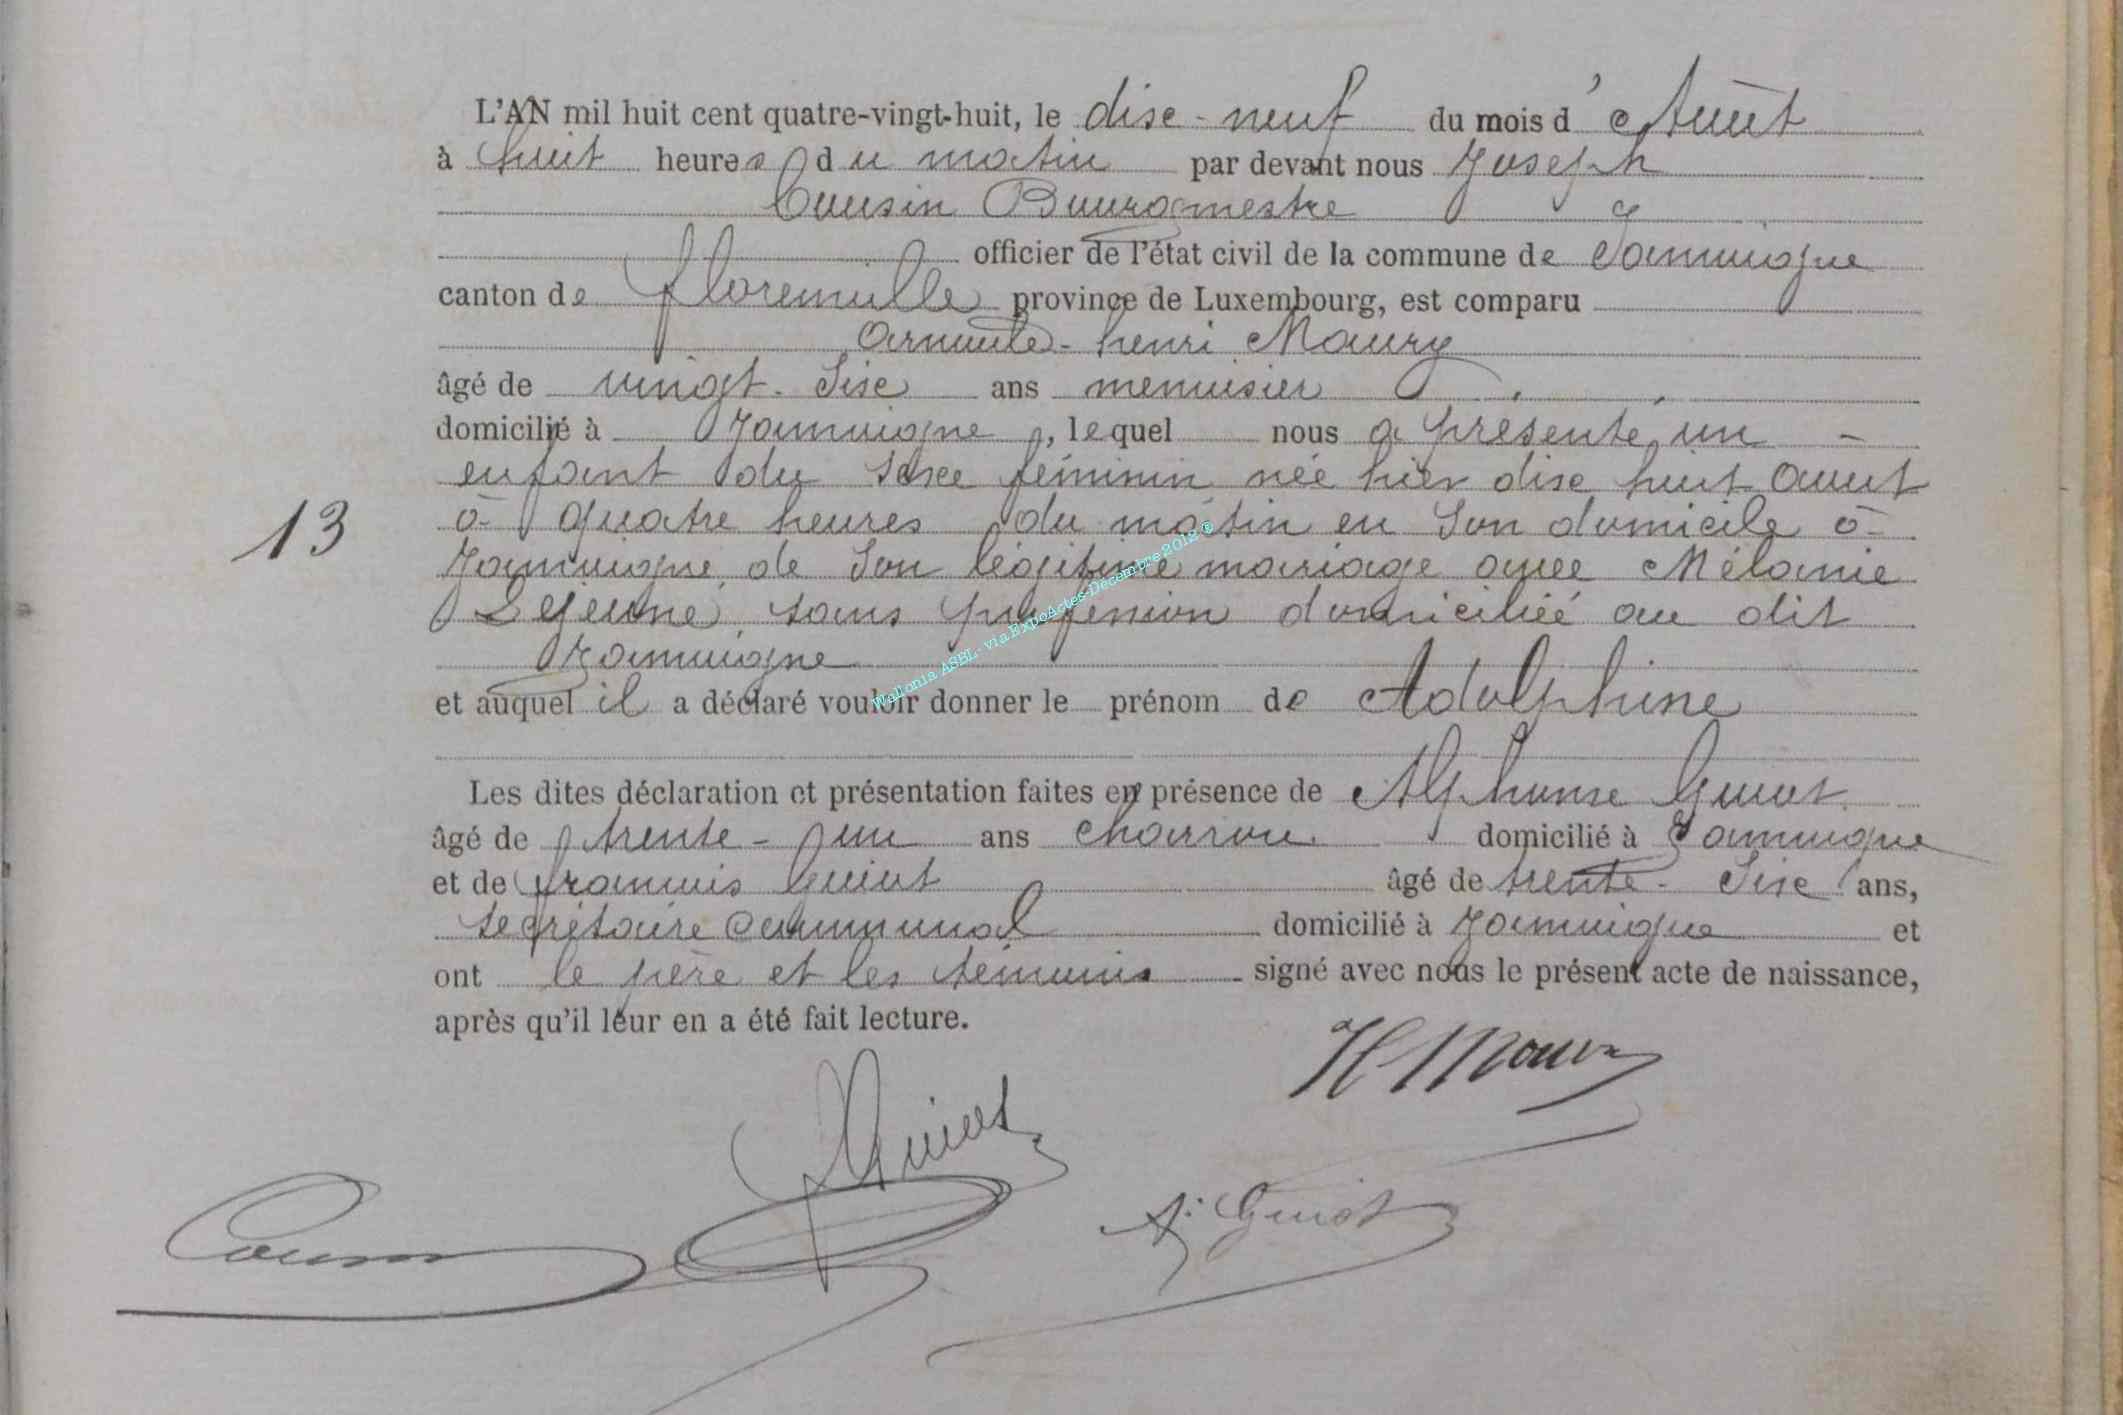 L'AN mil huit cent quatre-vingt-huit, le dise-neuf du mois d'Août
à huit heures du matin par devant nous Joseph
Cousin Bourgmestre
officier de l'état civil de la commune de Jamoigne
canton de florenville province de Luxembourg, est comparu
henri Maury
âgé de vingt-Sise ans menuisier
domicilié à Jamoigne, lequel nous a présenté un
enfant du sexe féminin née hier dise huit Août
à quatre heures du matin en Son domicile à
13
Jamoigne de Son légitime mariage avec Mélanie
Lejeune, sans profession domiciliée au dit
Jamoigne
et auquel il a déclaré vouloir donner le prénom de Adolphine
Les dites déclaration et présentation faites en présence de Alphonse Guiot
âgé de trente-un ans charron domicilié à Jamoigne
et de françois Guiot âgé de trente-Sise ans,
secrétaire communal domicilié à Jamoigne et
ont le père et les témoins signé avec nous le présent acte de naissance,
après qu'il leur en a été fait lecture.
H Maury
Guiot
Cousin
A. Guiot
Wallonia ASBL - via ExpoActes-Décembre 2012 ®